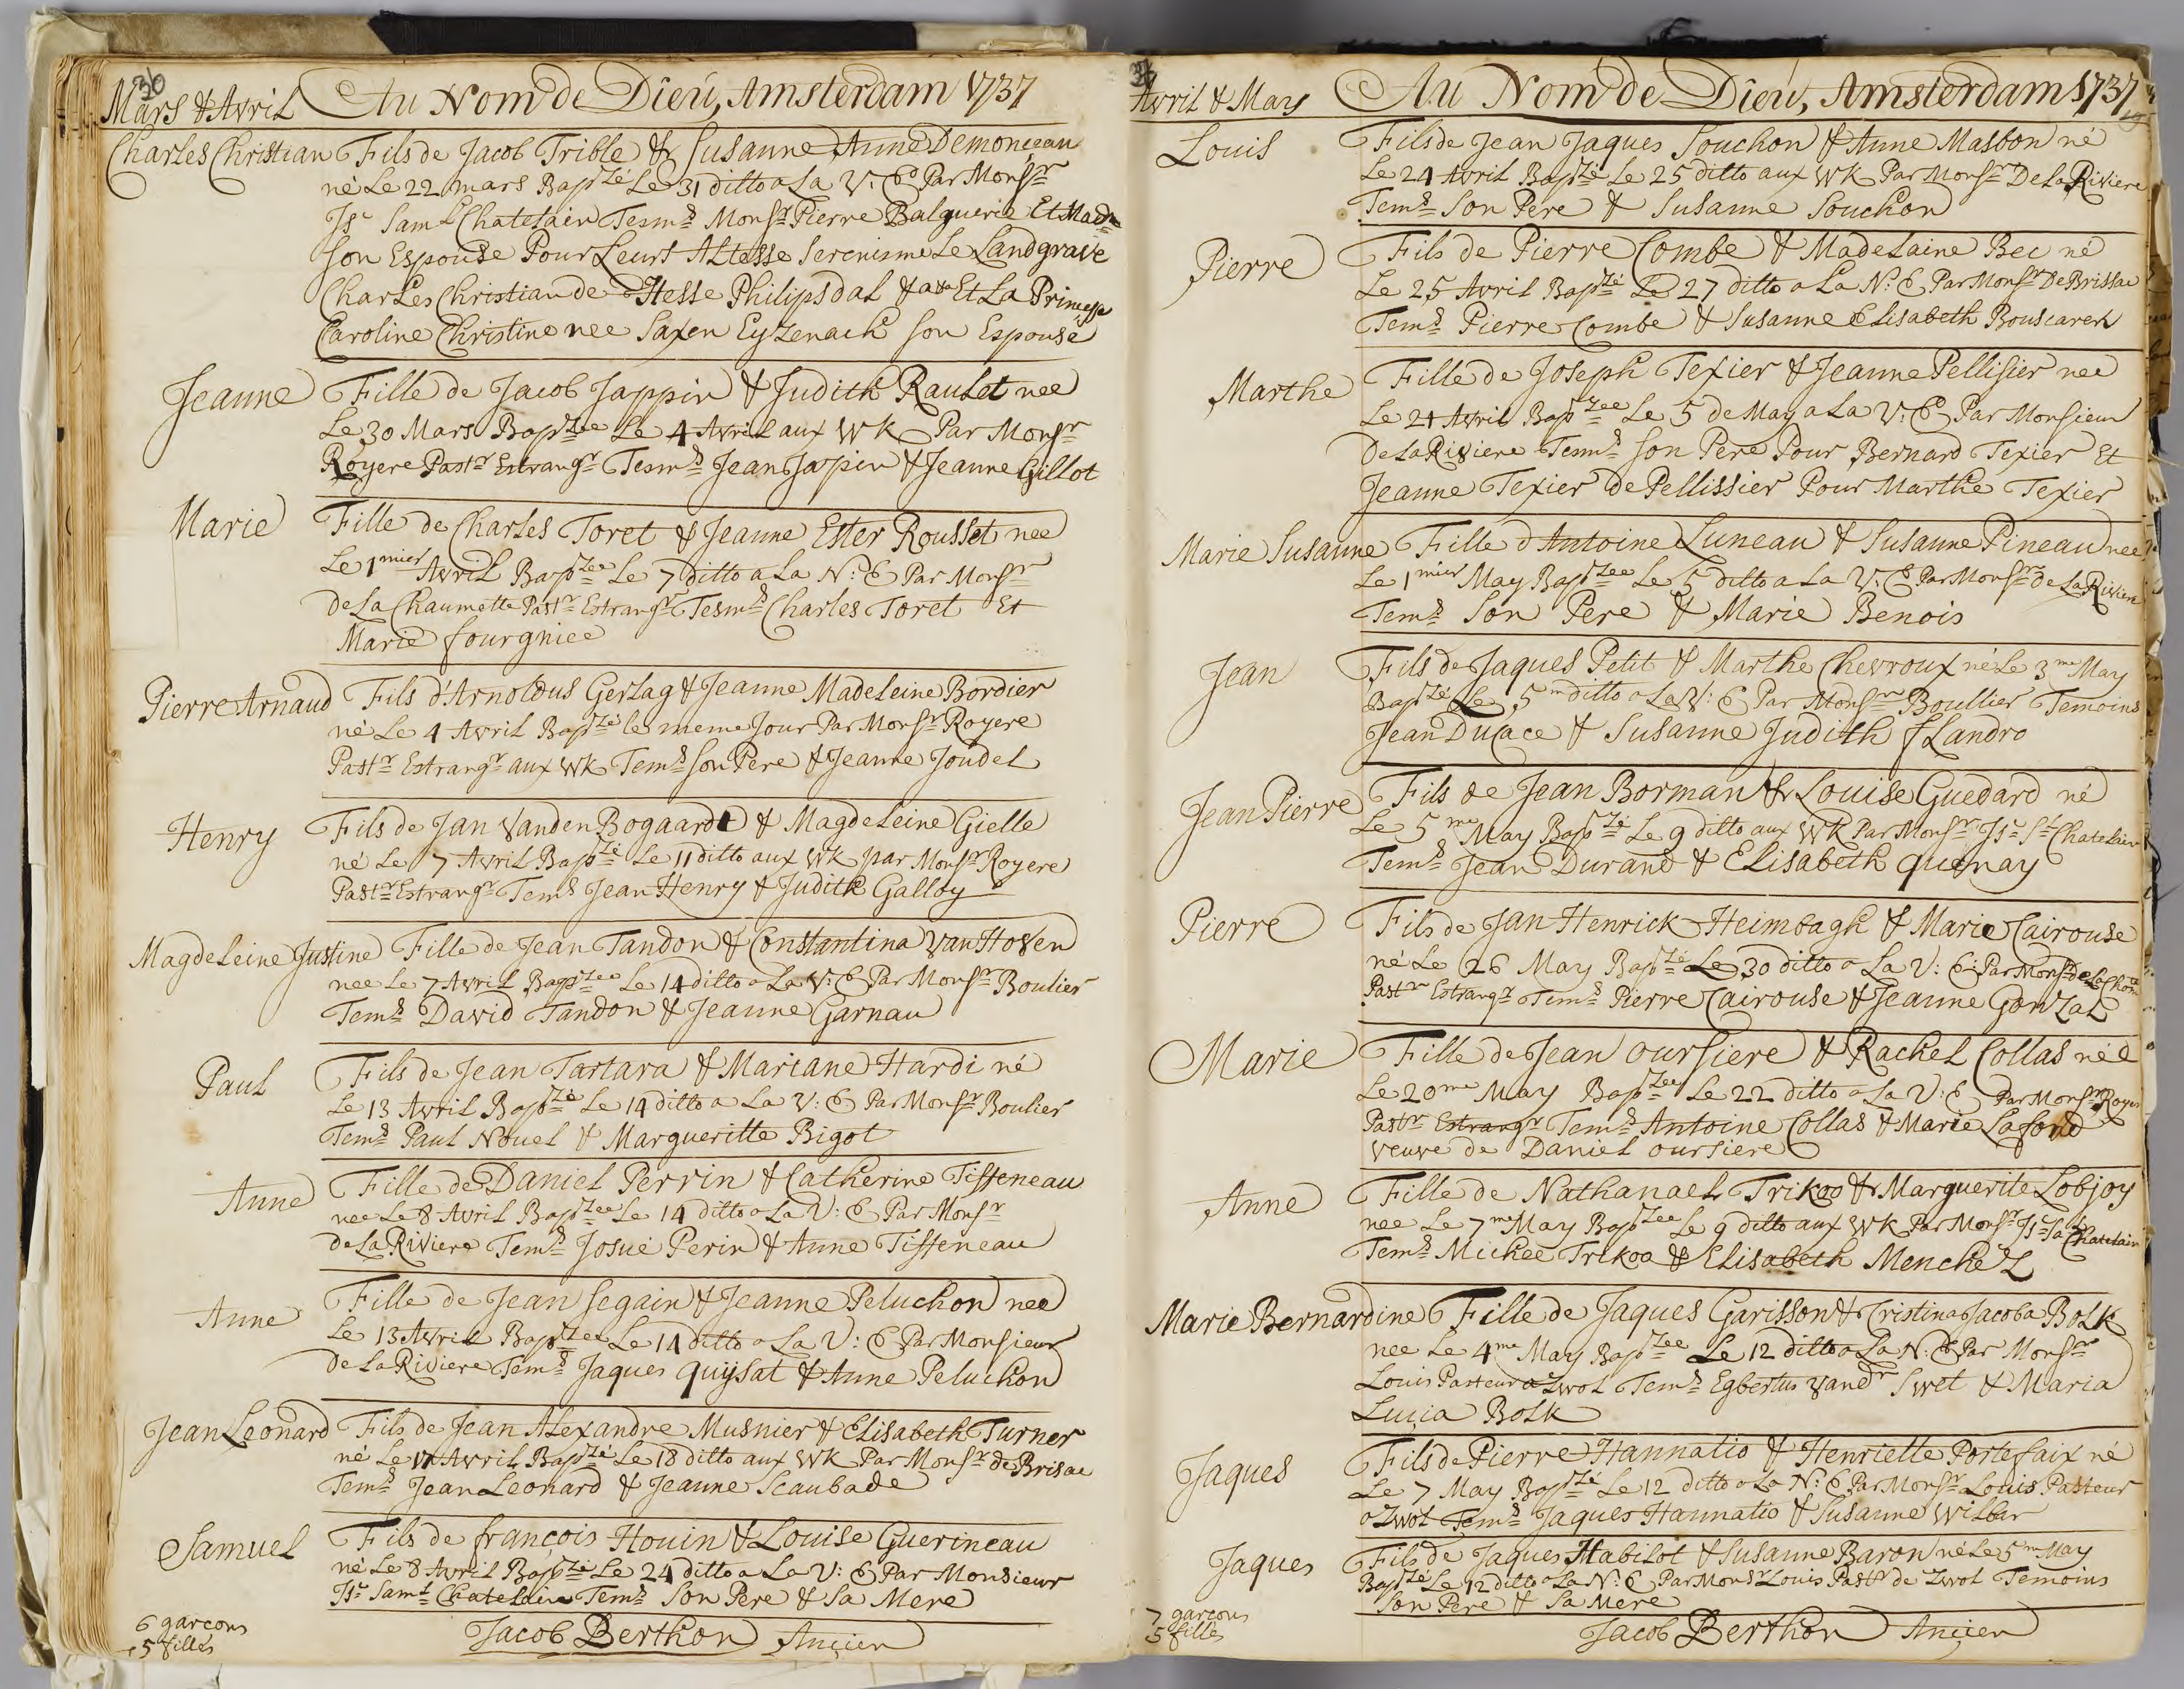 36
Mars & Avril Au Nom de Dieu, Amsterdam 1737
Charles Christian Fils de Jacob Trible & Susanne Anne Demonceau
né Le 22 mars Bapzé Le 31 ditto a La V: E Par Monsr
Isc Saml Chatelain Tesms Monsr Pierre Balguerie Et Made
son Espouse Pour Leurs Altesse Serenisme Le Landgrave
Charles Christian de Hesse Philipsdal & Et La Princesse
Caroline Christine nee Saxen Eyzenach son Espouse
Jeanne Fille de Jacob Jappin & Judith Raulet nee
Le 30 Mars Bapzee Le 4 Avril aux WK Par Monsr
Royere Pastr Estrangr Tesms Jean Japin & Jeanne Gillot
Marie Fille de Charles Toret & Jeanne Ester Rousset nee
Le 1mier Avril Bapzee Le 7 ditto a La N: E Par Monsr
de La Chaumette Pastr Estrangr Tesms Charles Toret Et
Marie fourgniee
Pierre Arnaud Fils d'Arnoldus Gerlag & Jeanne Madeleine Bordier
né Le 4 Avril Bapzé le meme Jour Par Monsr Royere
Pastr Estrangr aux WK Tems son Pere & Jeanne Joudel
Henry Fils de Jan Vanden Bogaarde & Magdeleine Gielle
né Le 7 Avril Bapzé Le 11 ditto aux WK par Monsr Royere
Pastr Estrangr Tems Jean Henry & Judith Galloy
Magdeleine Justine Fille de Jean Tandon & Constantina Van Hoven
nee Le 7 Avril Bapzee Le 14 ditto a La V: E Par Monsr Boulier
Tems David Tandon & Jeanne Garnau
Paul Fils de Jean Tartara & Mariane Hardi né
Le 13 Avril Bapzé Le 14 ditto a La V: E Par Monsr Boulier
Tems Paul Nouel & Margueritte Bigot
Anne Fille de Daniel Perrin & Catherine Tisseneau
nee Le 8 Avril Bapzee Le 14 ditto a La V: E Par Monsr
de La Riviere Tems Josué Perin & Anne Tisseneau
Anne Fille de Jean Segain & Jeanne Peluchon nee
Le 13 Avril Bapzee Le 14 ditto a La V: E Par Monsieur
de La Riviere Tems Jaques Quysat & Anne Peluchon
Jean Leonard Fils de Jean Alexandre Musnier & Elisabeth Turner
né Le 17 Avril Bapzé Le 18 ditto aux WK Par Monsr de Brisac
Tems Jean Leonard & Jeanne Scaubade
Samuel Fils de françois Houin & Louise Guerineau
né Le 8 Avril Bapzé Le 24 ditto a La V: E Par Monsieur
Isc Saml Chatelain Tems Son Pere & Sa Mere
6 garcons
5 filles
Jacob Berthon Ancien
37
Avril & May Au Nom de Dieu, Amsterdam 1737
Louis Fils de Jean Jaques Souchon & Anne Masbon né
Le 24 Avril Bapzé Le 25 ditto aux WK Par Monsr De La Riviere
Tems Son Pere & Susanne Souchon
Pierre Fils de Pierre Combe & Madelaine Bec né
Le 25 Avril Bapzé Le 27 ditto a La N: E Par Monsr De Brissac
Tems Pierre Combe & Susanne Elisabeth Bouscaren
Marthe Fille de Joseph Texier & Jeanne Pellisier nee
Le 21 Avril Bapzee Le 5 de May a La V: E Par Monsieur
De La Riviere Tems Son Pere Pour Bernard Texier Et
Jeanne Texier de Pellissier Pour Marthe Texier
Marie Susanne Fille d'Antoine Luneau & Susanne Pineau nee
Le 1mier May Bapzee Le 5 ditto a La V: E Par Monsr de La Riviere
Tems Son Pere & Marie Benois
Jean Fils de Jaques Petit & Marthe Chevroux né Le 3me May
Bapzé Le 5m ditto a La V: E Par Monsr Boullier Temoins
Jean Ducace & Susanne Judith fLandro
Jean Pierre Fils de Jean Borman & Louise Guedard né
Le 5me May Bapzé Le 9 ditto aux WK Par Monsr Isc Sl Chatelain
Tems Jean Durand & Elisabeth Quenay
Pierre Fils de Jan Henrick Heimbagh & Marie Cairouse
né Le 26 May Bapzé Le 30 ditto a La V: E: Par Monsr de La Chom
Pastr Estrangr Tems Pierre Cairouse & Jeanne Gonzal
Marie Fille de Jean Oursiere & Rachel Collas née
Le 20me May Bapzee Le 22 ditto a La V: E Par Monsr Royer
Pastr Estrangr Tems Antoine Collas & Marie Lafond
veuve de Daniel Oursiere
Anne Fille de Nathanael Trikoo & Marguerite Lobjoy
nee Le 7me May Bapzee Le 9 ditto aux WK Par Monsr Isc Sa Chatelain
Tems Michee Trikoo & Elisabeth Menchez
Marie Bernardine Fille de Jaques Garisson & Cristina Jacoba Bolk
nee Le 4me May Bapzee Le 12 ditto a La N: E Par Monsr
Louis Pasteur a Zwol Tems Egbertus Vandr Swet & Maria
Lucia Bolk
Jaques Fils de Pierre Hannatio & Henriette Portefaix né
Le 7 May Bapzé Le 12 ditto a La N: E Par Monsr Louis Pasteur
a Zwol Tems Jaques Hannatio & Susanne Wilbar
Jaques Fils de Jaques Habilot & Susanne Baron né Le 5m May
Bapzé Le 12 ditto a La N: E Par Monsr Louis Pastr de Zwol Temoins
Son Pere & Sa Mere
7 garcons
5 filles
Jacob Berthon Ancien